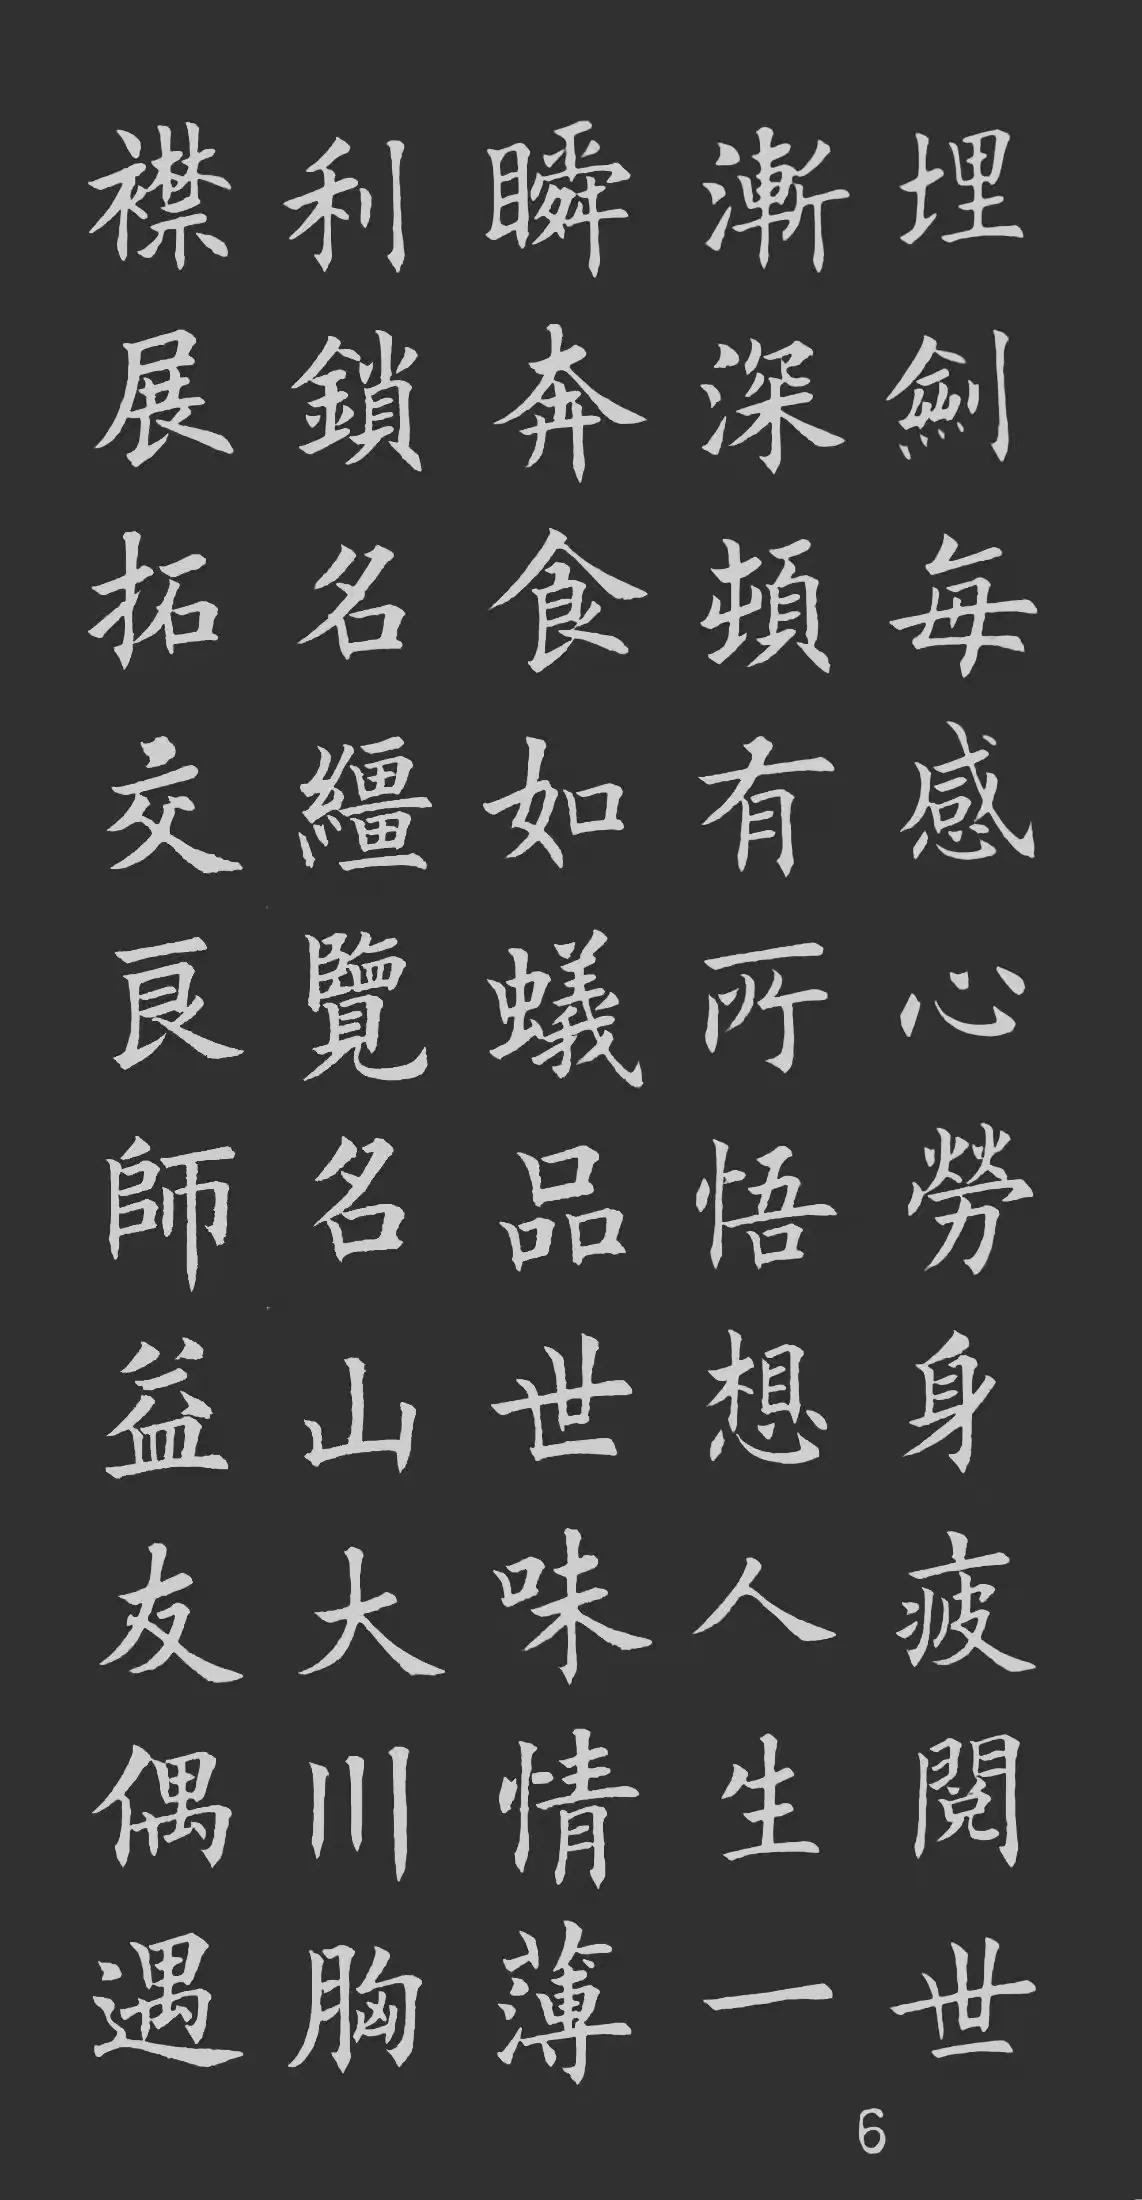 埋劍每感心勞身疲閱世
漸深頓有所悟想人生一
瞬奔食如蟻品世味情薄
利鎖名繮覽名山大川胸
襟展拓交良師益友偶遇
6